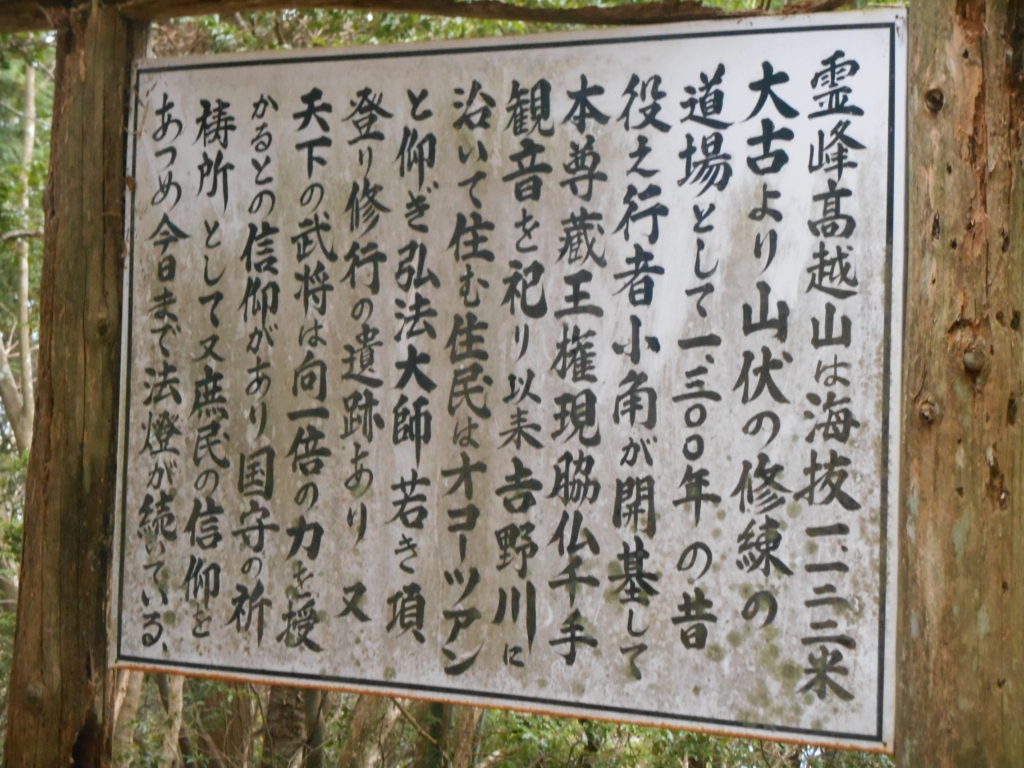 霊峰高越山は海抜一、一三三米
大古より山伏の修練の
道場として一、三〇〇年の昔
役え行者小角が開基して
本尊蔵王権現脇仏千手
観音を祀り以来吉野川に
沿いて住む住民はオコーツアン
と仰ぎ弘法大師若き頃
登り修行の遺跡あり又
天下の武将は向一倍の力を授
かるとの信仰があり国守の祈
祷所として又庶民の信仰を
あつめ今日まで法燈が続いている、